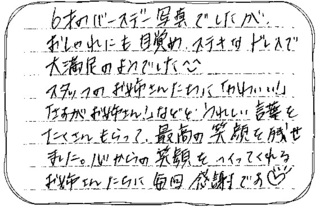 6才のバースデー写真でしたが、
おしゃれにも目覚め ステキな ドレスで
大満足のようでした〜
スタッフのお姉さんたちに「かわいい!」
「さすがお姉さん!」などと うれしい 言葉を
たくさん もらって、最高の 笑顔を 残せ
ました。心からの 笑顔を つくってくれる
お姉さんたちに 毎回 感謝です